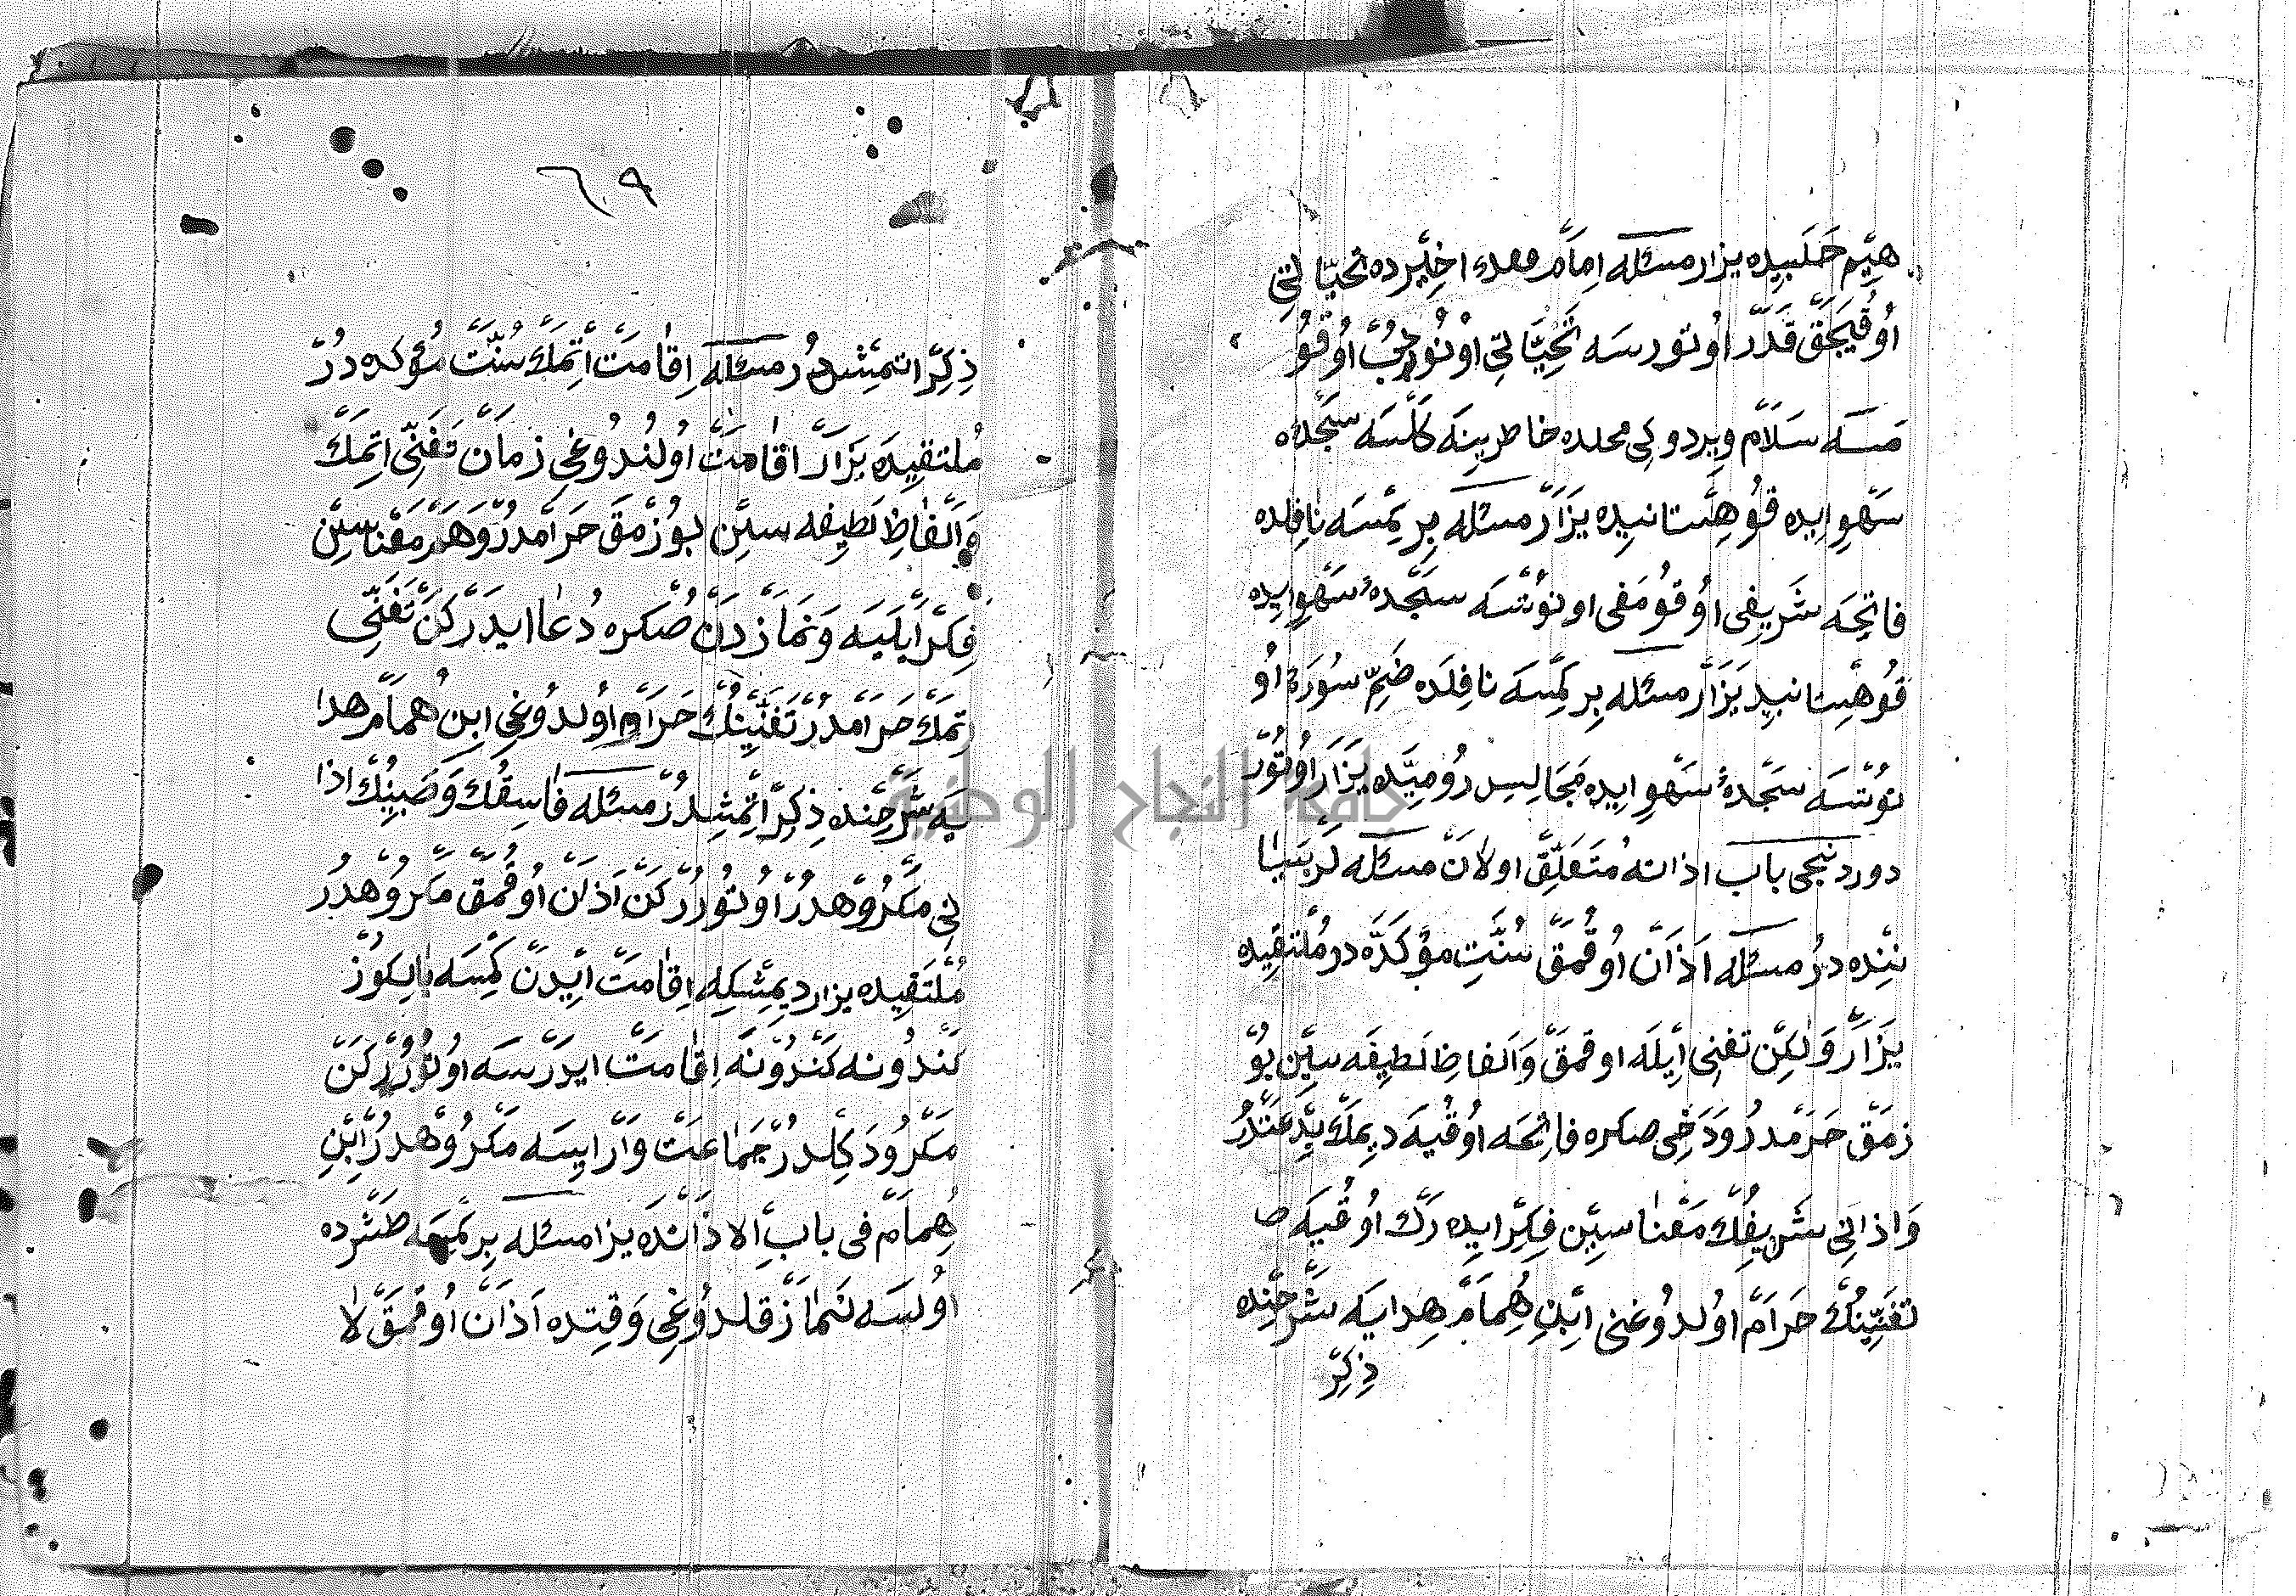 هيم حلبيده يزار مسئله امام قعدۀ اخيرده تحياتى
اوقيجق قدر اوتورسه تحياتى اونودب اوقو
مسه سلام ويردوكى محلده خاطرينه كلسه سجدۀ
سهو ايده قوهستانيده يزار مسئله بر كمسه نافلده
فاتحه شريفى اوقومغى اونوتسه سجدۀ سهو ايده
قوهستانيد يزار مسئله بر كمسه نافلده ضم سورة او
نوتسه سجدۀ سهو ايده مجالس روميده يزار اوتوز
دوردنجى باب اذانه متعلق اولان مسئله لر بيا
ننده در مسئله اذان اوقمق سنت مؤكده در ملتقيده
يزار ولكن تغنى ايله اوقمق والفاظ لطيفه سين بو
زمق حرمدر ودخى صكره فاتحه اوقيه ديمك بدعتدر
واذانى شريفك معناسين فكر ايده رك اوقيه
تغنينك حرام اولدوغنى ابن همام هدايه شرحنده
ذكر
٦٩
ذكر اتمشدر مسئله اقامت اتمك سنت مؤكده در
ملتقيده يزار اقامت اولندوغى زمان تغنى اتمك
والفاظ لطيفه سين بوزمق حرامدر وهر معناسين
فكر ايليه ونمازدن صكره دعا ايدركن تغنى
اتمك حرامدر تغنينك حرام اولدوغى ابن همام هدا
يه شرحنده ذكر اتمشدر مسئله فاسقك وصبينك اذا
نى مكروهدر اوتوررركن اذان اوقمق مكروهدر
ملتقيده يزار ديمشكه اقامت ايدن كمسه يالكوز
كندونه كندونه اقامت ايدرسه اوتورركن
مكرود كلدر جماعت وار ايسه مكروهدر ابن
همام فى باب الاذانده يزا مسئله بر كمسه طشرده
اولسه نماز قلدوغى وقتده اذان اوقمق لا